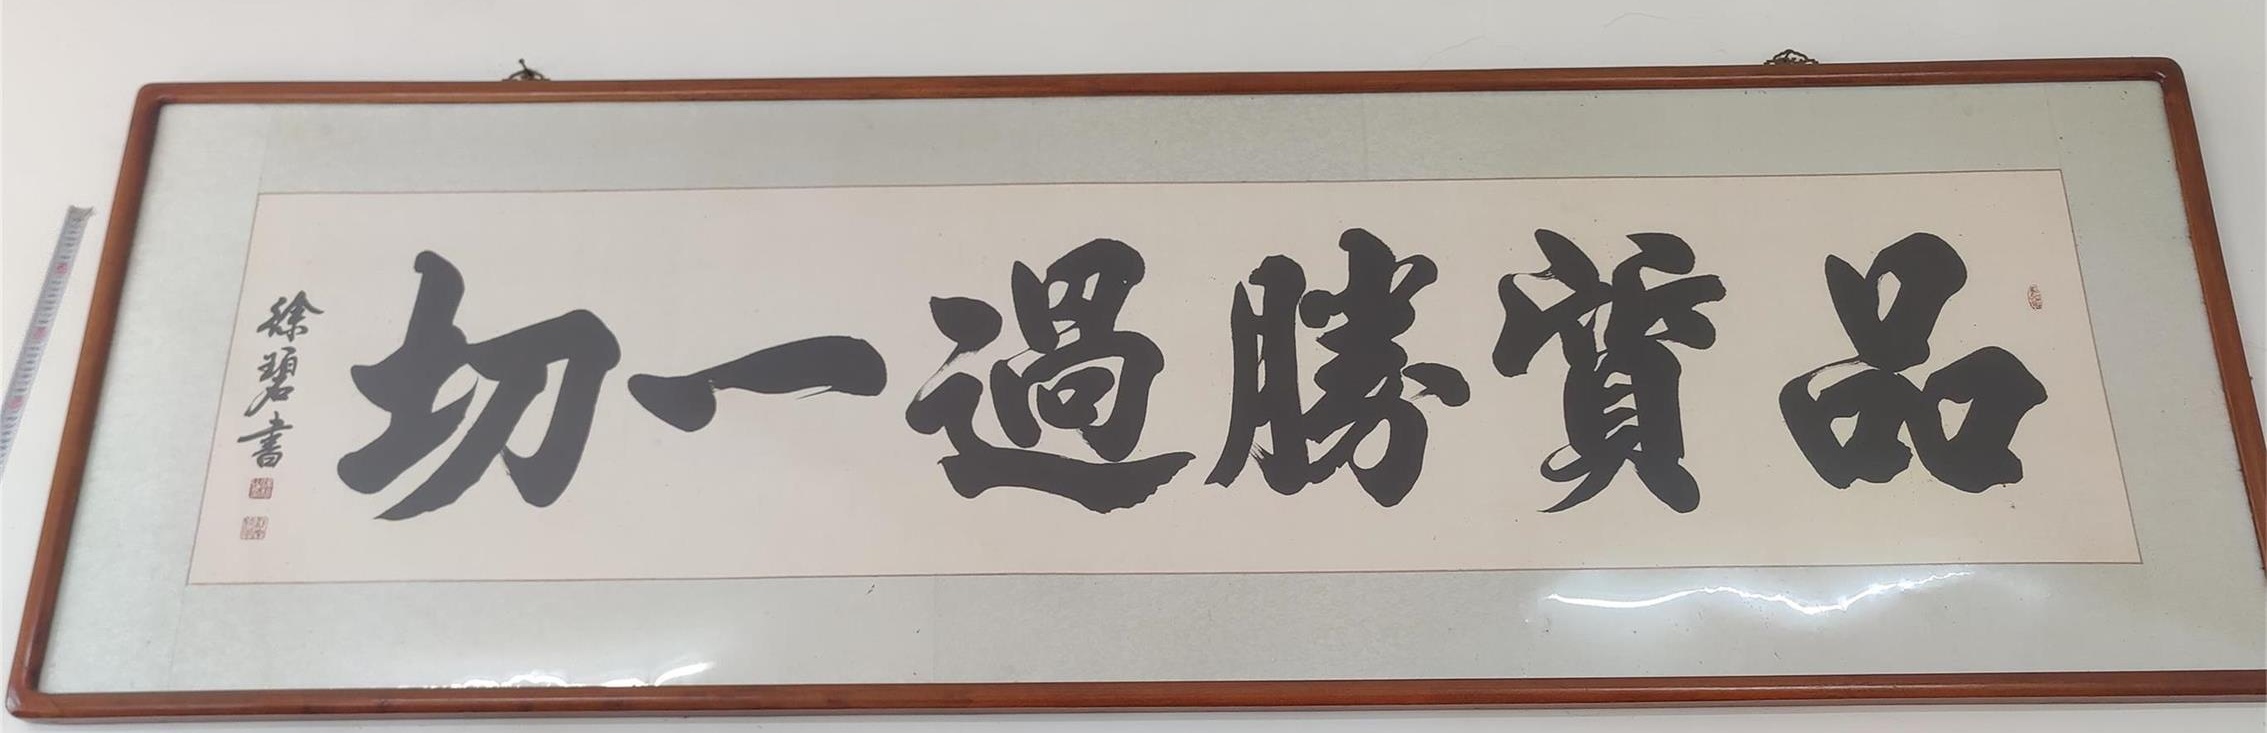 品質勝過一切
徐碧書